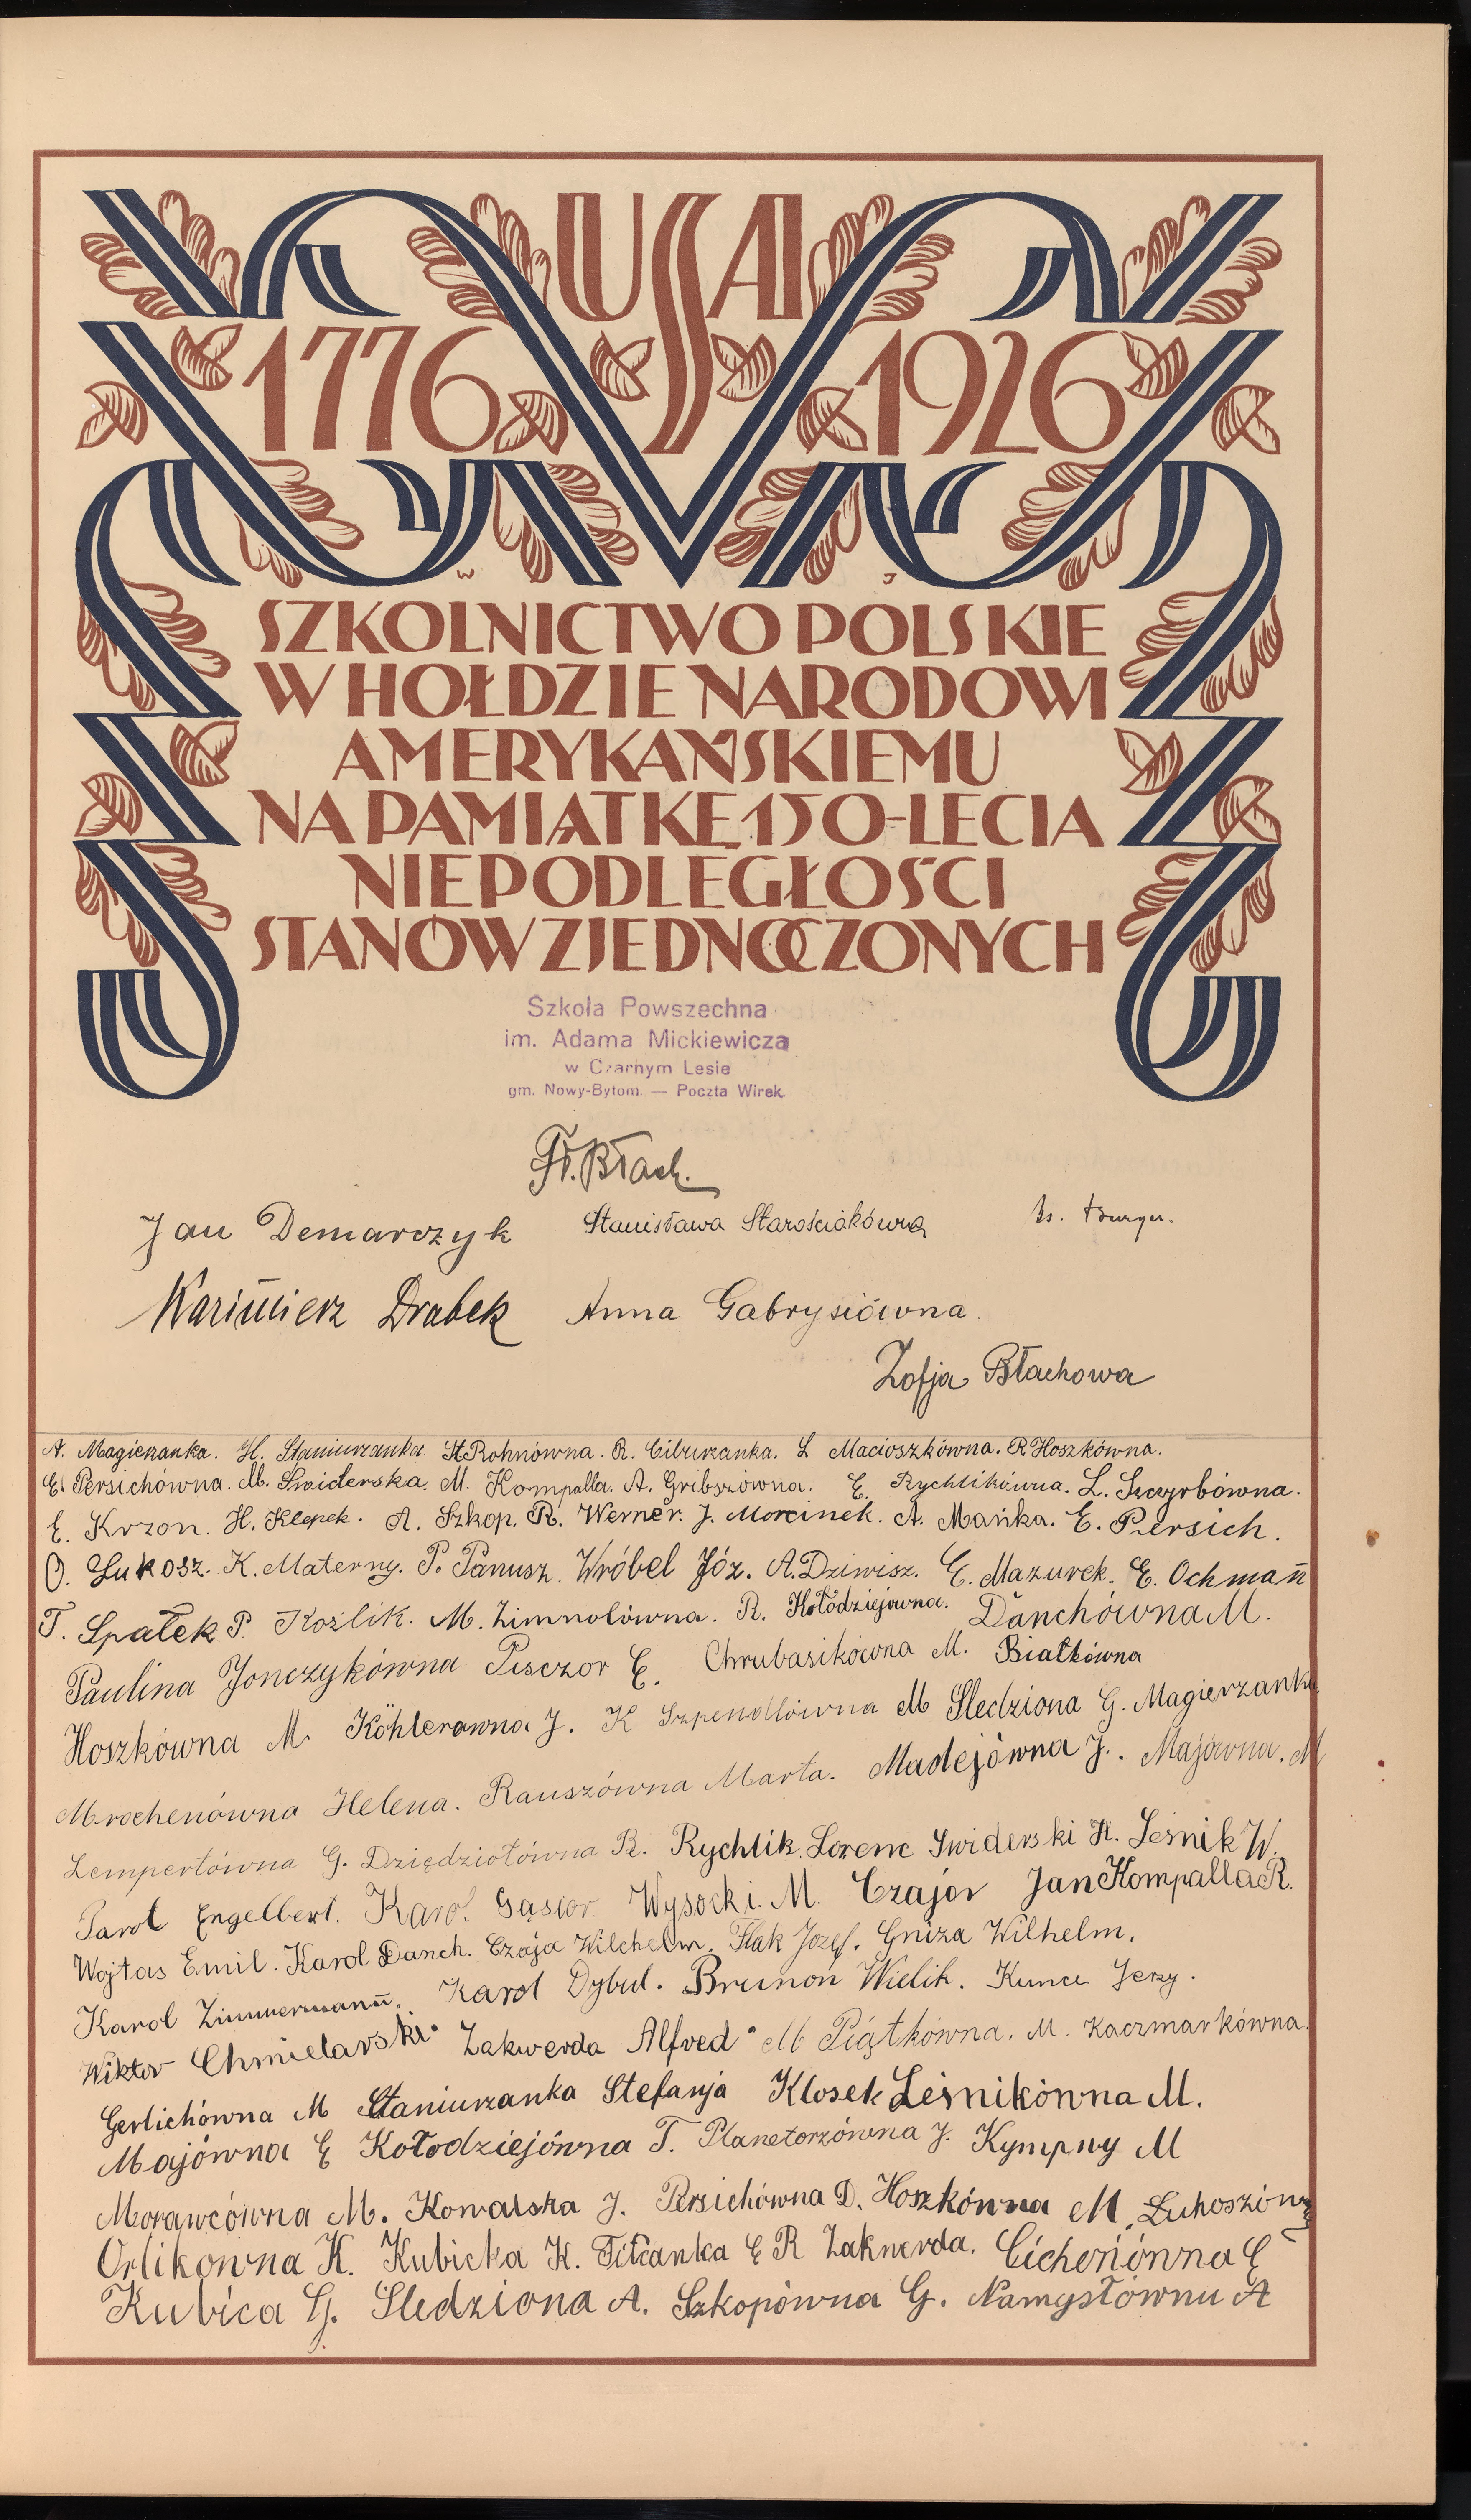 USA
1776 1926
W J
SZKOLNICTWO POLSKIE
W HOŁDZIE NARODOWI
AMERYKAŃSKIEMU
NA PAMIĄTKĘ 150-LECIA
NIEPODLEGŁOŚCI
STANÓW ZJEDNOCZONYCH
Szkoła Powszechna
im. Adama Mickiewicza
w Czarnym Lesie
gm. Nowy-Bytom. — Poczta Wirek.
Fr. Błach.
Jan Demarczyk Stanisława Starościakówna
Kazimierz Drabek Anna Gabrysiówna.
Zofja Błachowa
A. Magierzanka. H. Staniurzanka. St Rohnówna. R. Ciburzanka. L Macioszkówna. R Hoszkówna.
E. Persichówna. M. Świderska. M. Kompalla. A. Gribszówna. E. Rychlikówna. L. Szczyrbówna.
E. Krzon. H. Klepek. A. Szkop. R. Werner. J. Morcinek. A. Mańka. E. Persich.
O. Lukosz. K. Materny. P. Panusz. Wróbel Józ. A. Dziwisz. E. Mazurek. E. Ochmann
T. Spałek P. Kozlik. M. Zimnolówna. R. Kołodziejówna. Danchówna M.
Paulina Jonczykówna Pisczor E. Chrubasikówna M. Białkówna
Hoszkówna M. Köhlerówna J. K Szpendlówna M Sledziona G. Magierzanka
Mrochenówna Helena. Rauszówna Marta. Madejówna J.. Majówna. M
Lempertówna G. Dziędziołówna R. Rychlik Lorenc Swiderski H. Leśnik W.
Parol Engelbert. Karol Gąsior Wysocki. M. Czajor Jan Kompalla R.
Wojtas Emil. Karol Danch. Czaja Wilchelm. Flak Józef. Gniza Wilhelm.
Karol Zimmermann. Karol Dybul. Brunon Wielik. Kunce Jerzy.
Wiktor Chmielarski. Zakwerda Alfred. M Piątkówna. M. Kaczmarkówna.
Gerlichówna M Staniurzanka Stefanja Klosek Leśnikówna M.
Majówna E Kołodziejówna T. Planetorzówna J. Kympny M
Morawcówna M. Kowalska J. Persichówna D. Hoszkówna M. Lukoszówna
Orlikowna K. Kubicka K. E R Zakwerda. Cichoniówna E
Kubica G. Sledziona A. Szkopówna G. Namysłówna A